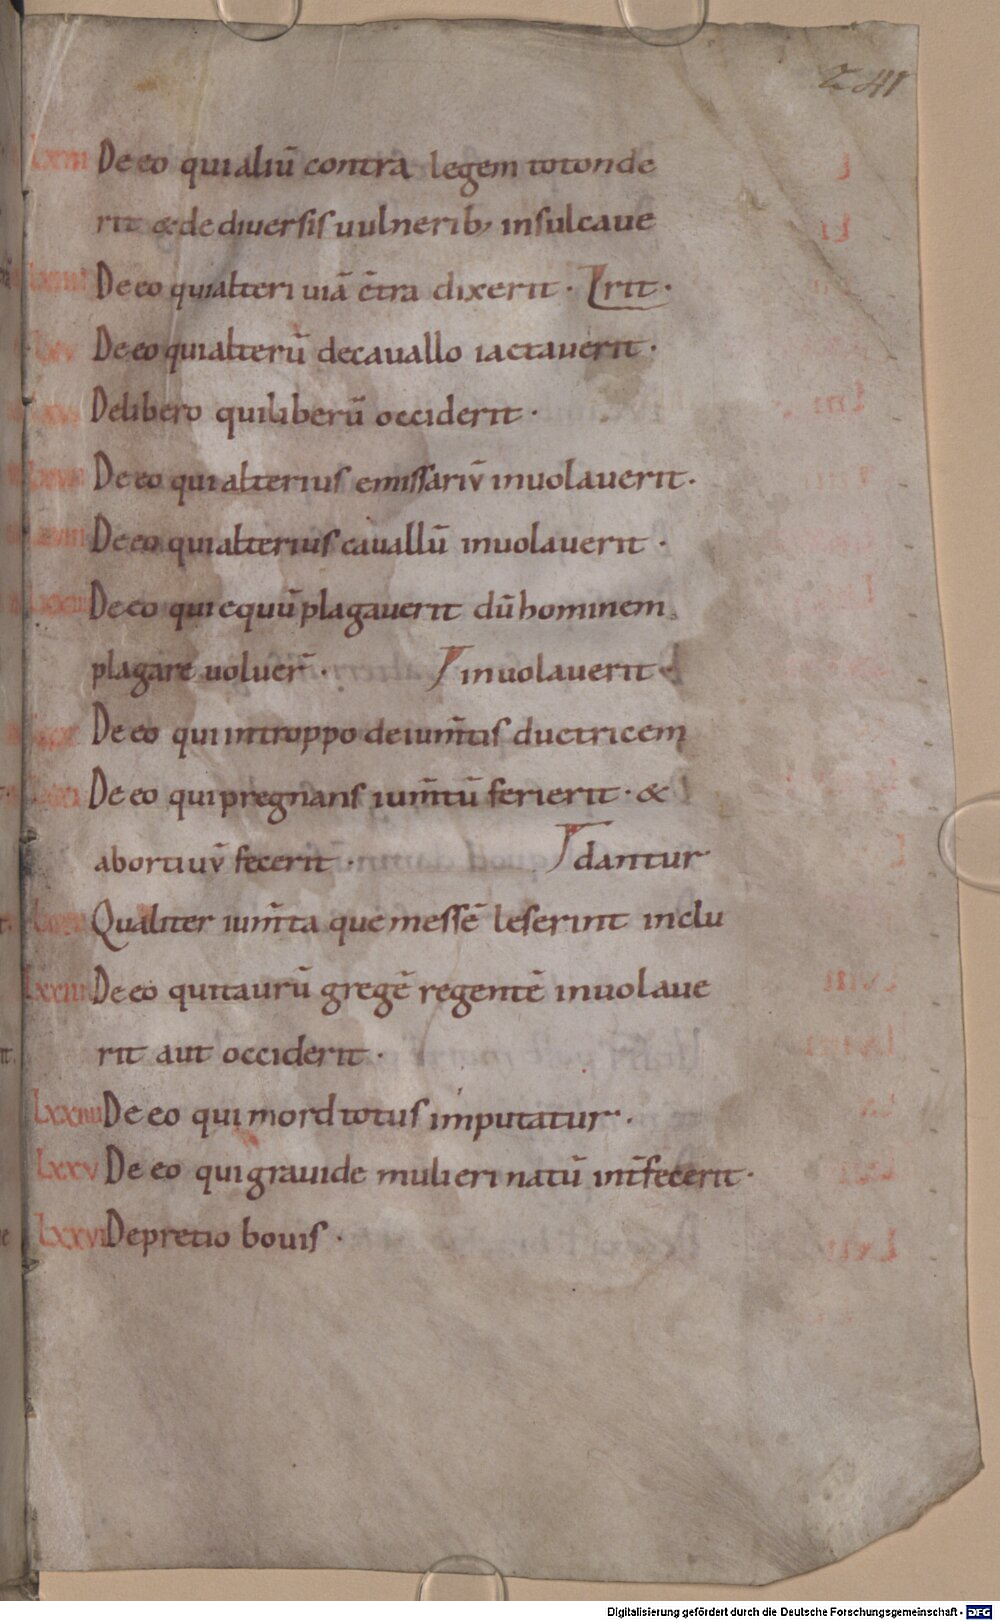 241
lxiii De eo qui aliū contra legem totonde
rit & de diuersis uulnerib; insulcaue
lxiiii De eo qui alteri uiā c̄tra dixerit · rit ·
lxv De eo qui alterū de cauallo iactauerit ·
lxvi De libero qui liberū occiderit ·
lxvii De eo qui alterius emissariū inuolauerit ·
lxviii De eo qui alterius cauallū inuolauerit ·
De eo qui equū plagauerit dū hominem
plagare uoluer̄ · inuolauerit ·
lxx De eo qui in troppo de ium̄tis ductricem
lxxi De eo qui pregnans ium̄tū ferierit · &
abortiuū fecerit · dantur
lxxii Qualiter ium̄ta que messē leserint inclu
lxxiii De eo qui taurū gregē regentē inuolaue
rit aut occiderit ·
lxxiiii De eo qui mord totus imputatur ·
lxxv De eo qui grauide mulieri natū int̄fecerit ·
lxxvi De pretio bouis ·
Digitalisierung gefördert durch die Deutsche Forschungsgemeinschaft - DFG